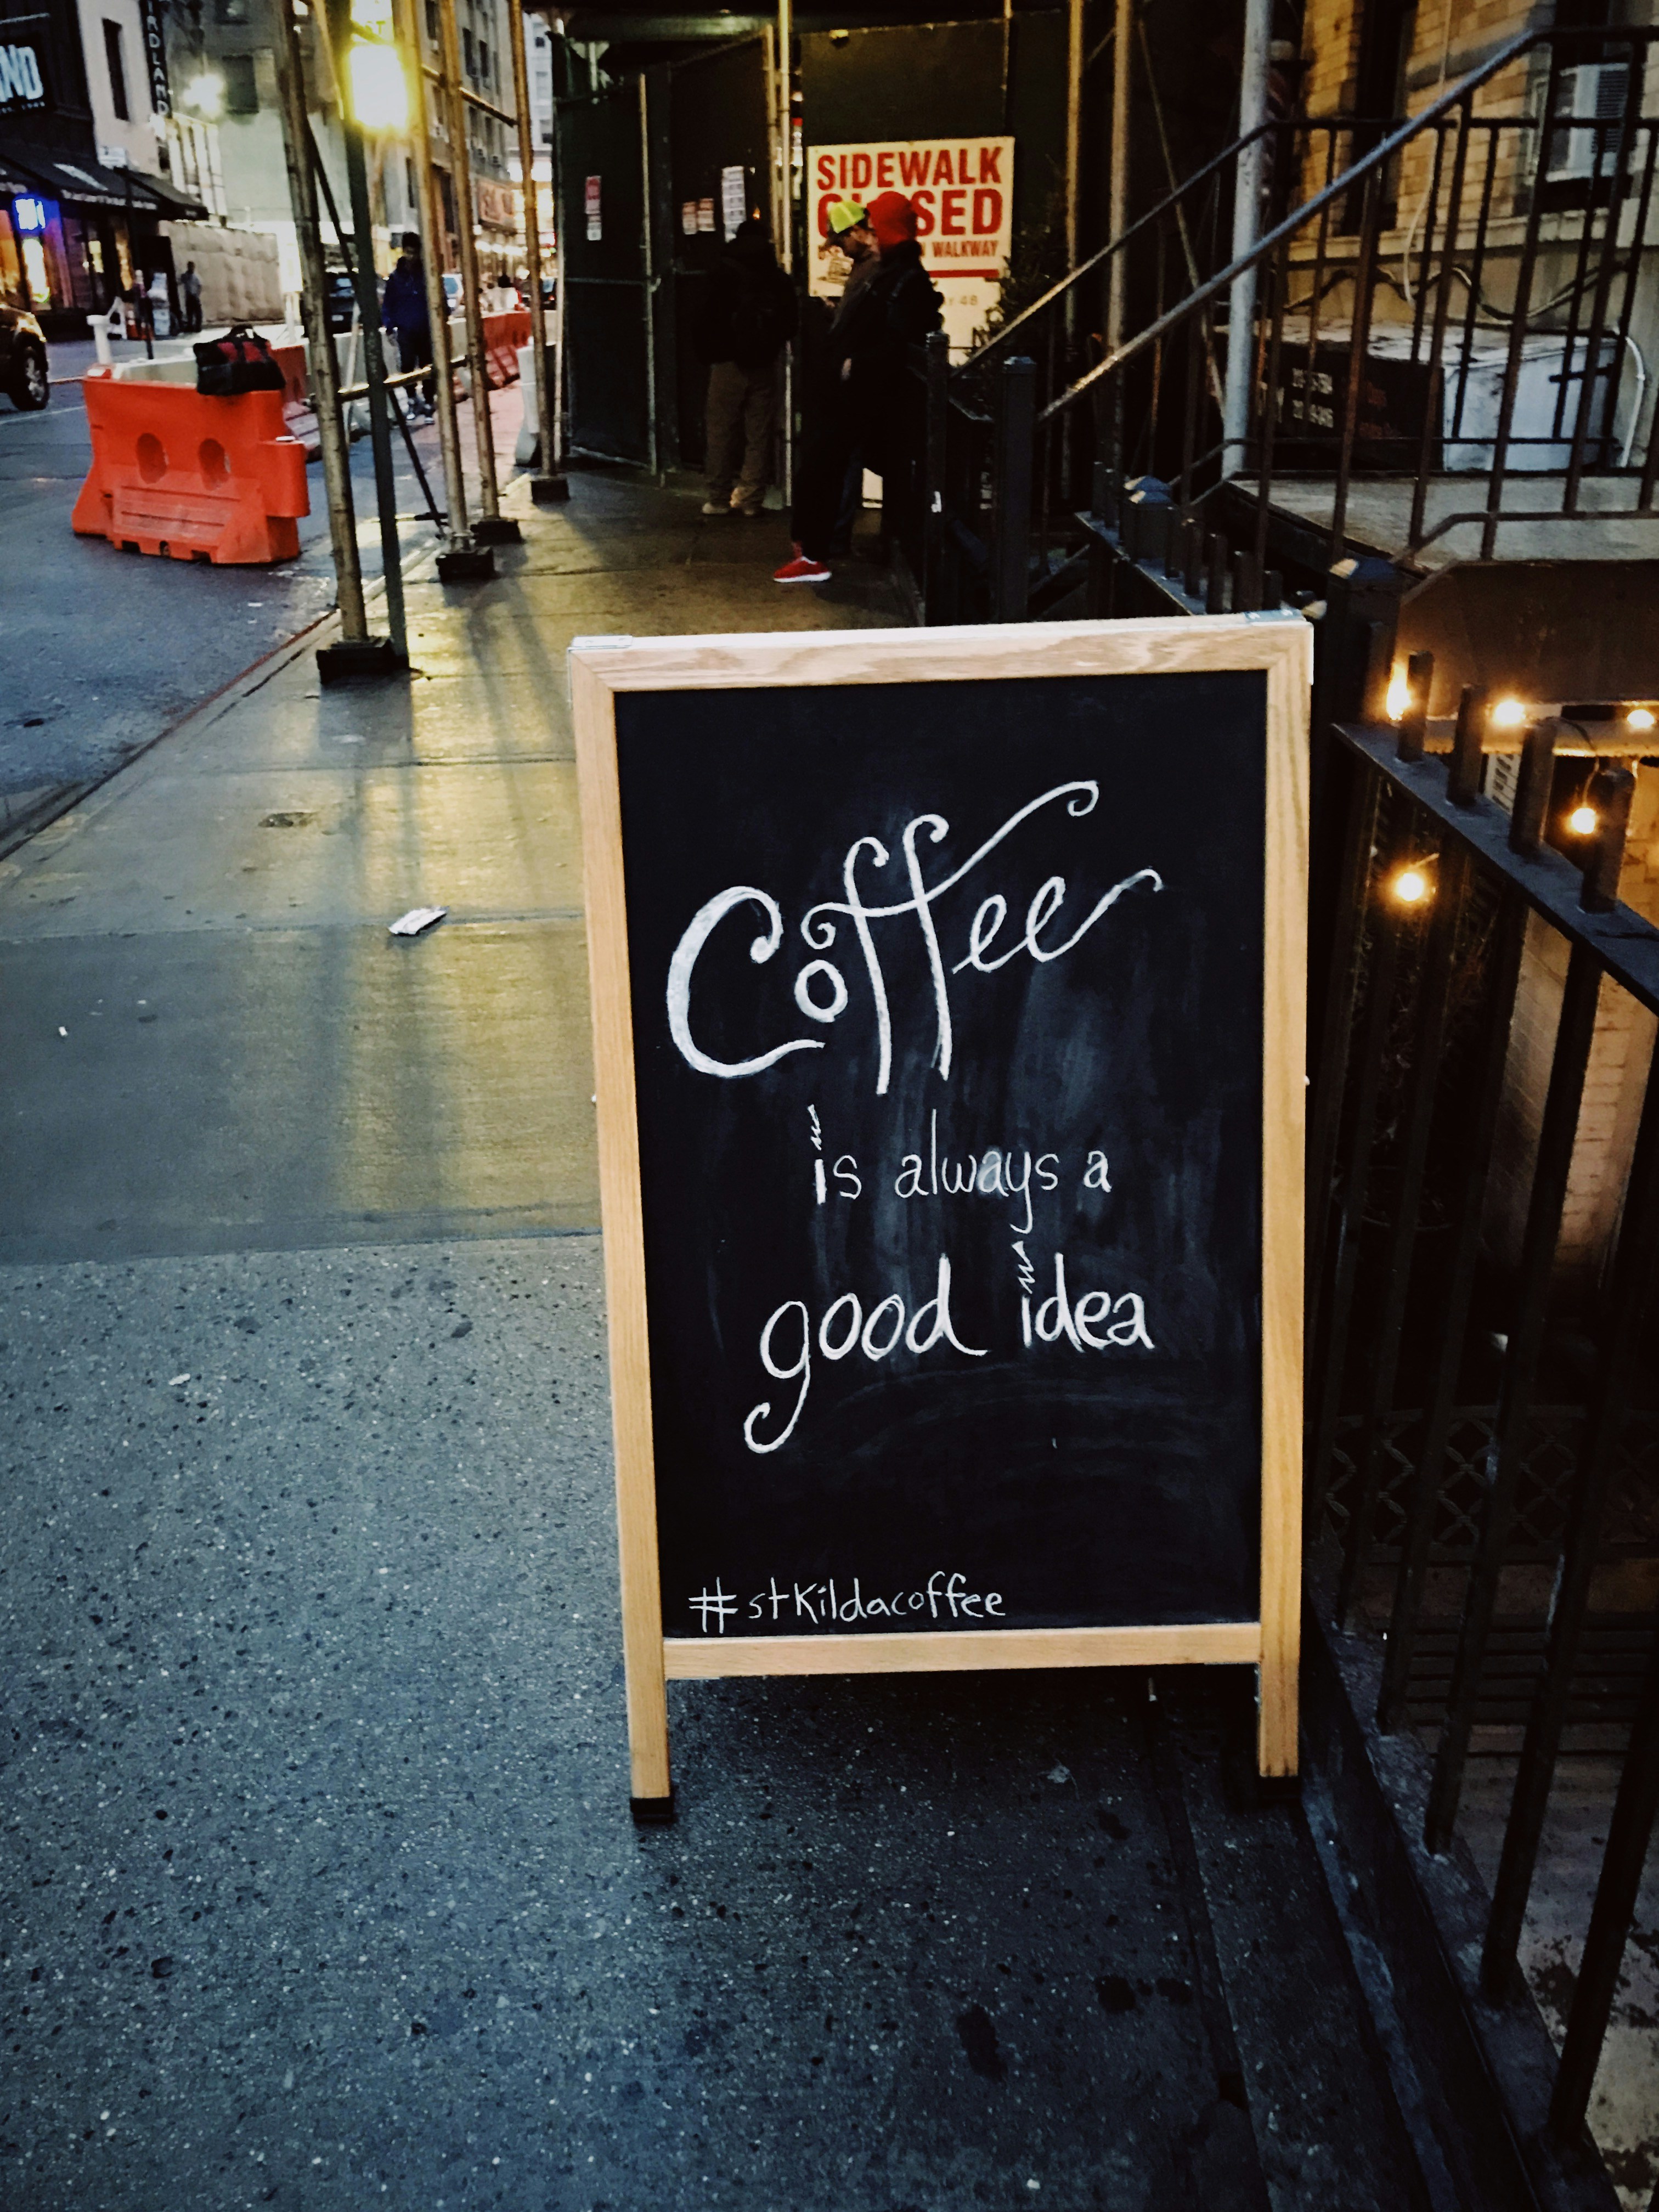 SIDEWALK
WALKWAY
Coffee
is always a
good idea
#stkildacoffee